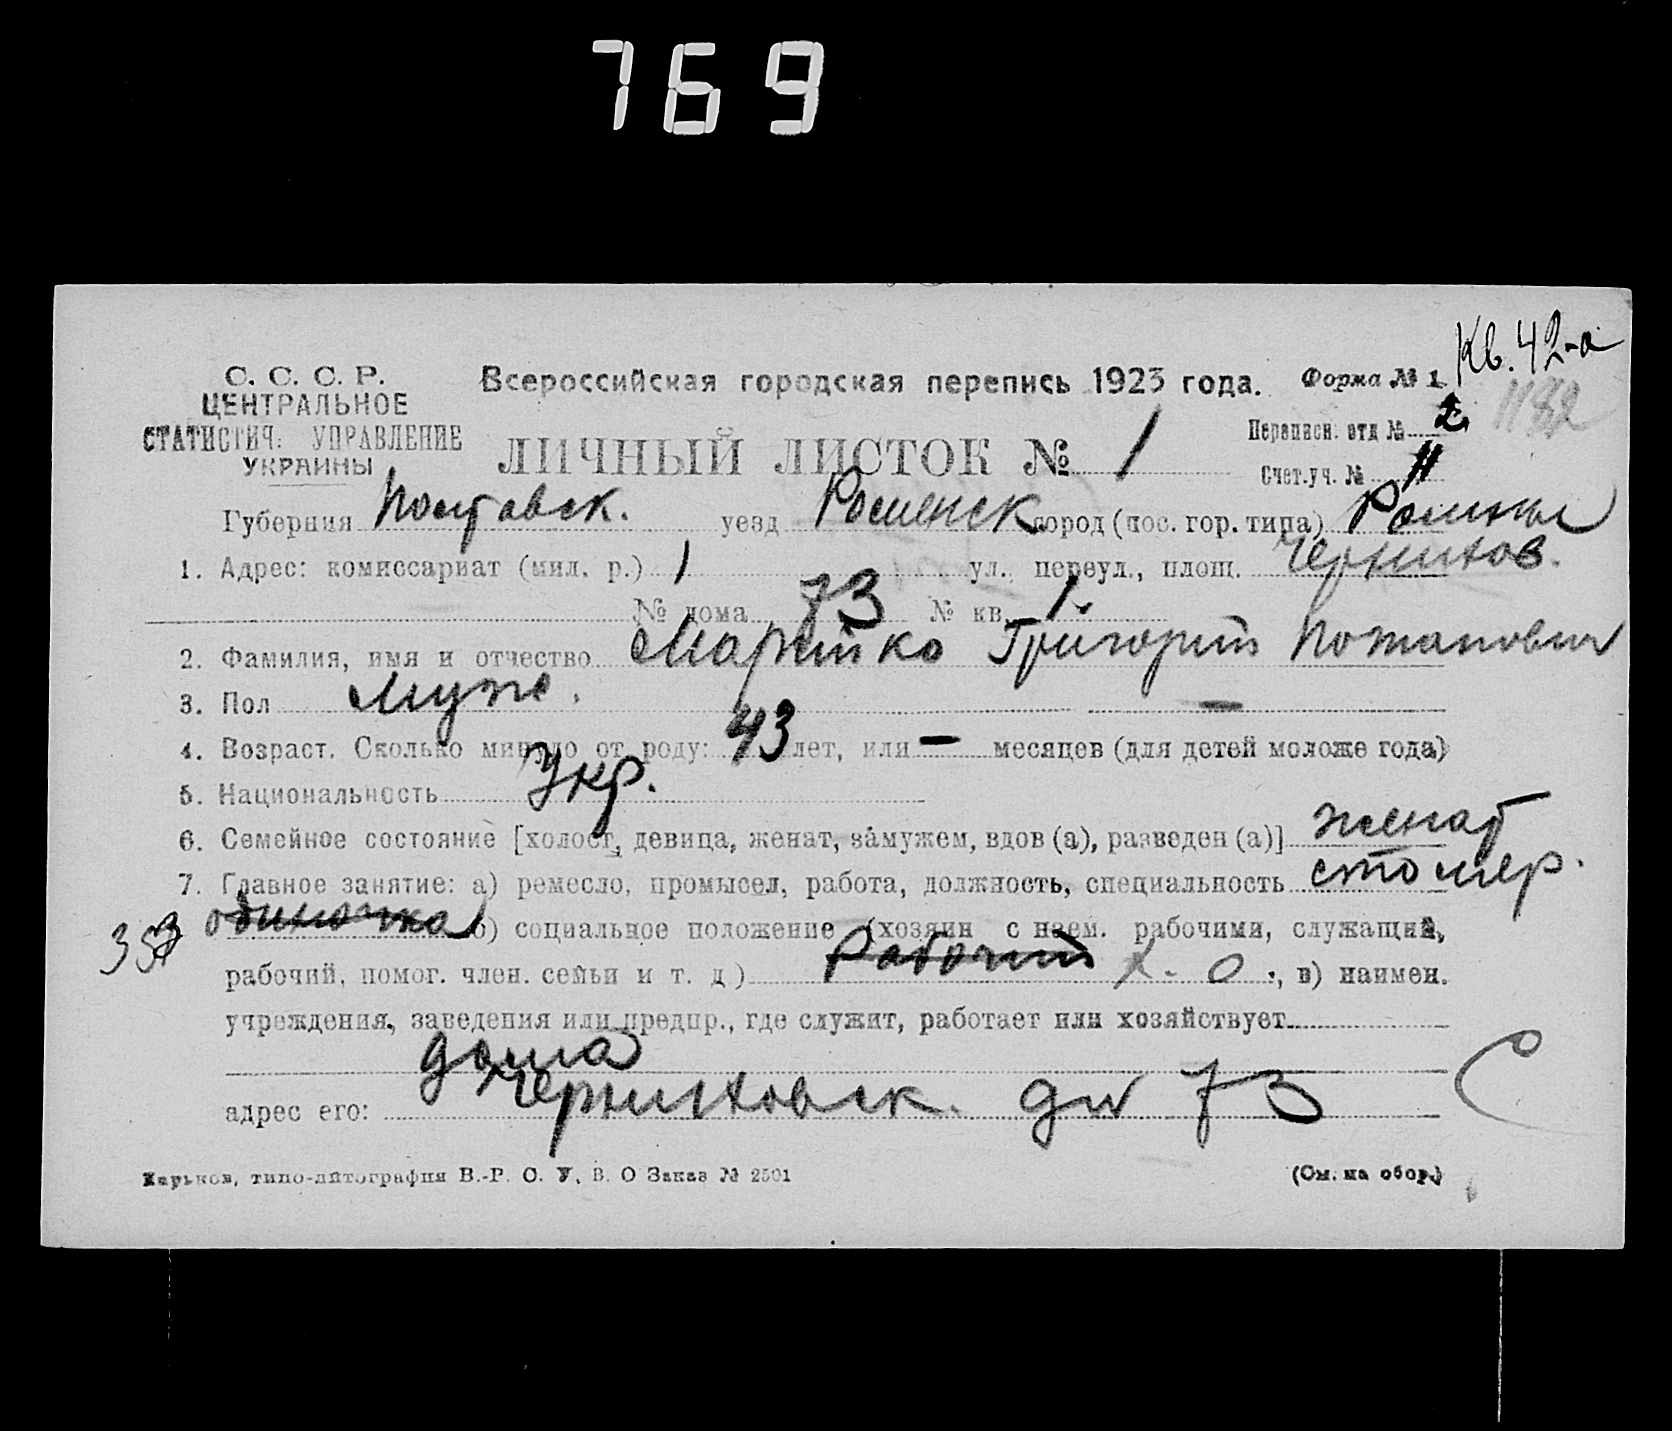 769
Кв. 42-а
С. С. С. Р.
ЦЕНТРАЛЬНОЕ
СТАТИСТИЧ. УПРАВЛЕНИЕ
УКРАИНЫ
Всероссийская городская перепись 1923 года.
Форма № 1
1182
ЛИЧНЫЙ ЛИСТОК № 1
Переписн. отд № 2
Счет.уч. № 11
Губерния Полтавск. уезд Роменск город (пос. гор. типа) Ромны
1. Адрес: комиссариат (мил. р.) 1 ул., переул., площ. Чернихов.
№ дома 73 № кв. 1.
2. Фамилия, имя и отчество Григорий Потапович
3. Пол Муж. —
4. Возраст. Сколько минуло от роду: 43 лет, или — месяцев (для детей моложе года)
5. Национальность Укр.
6. Семейное состояние [холост, девица, женат, замужем, вдов (а), разведен (а)] женат
7. Главное занятие: а) ремесло, промысел, работа, должность, специальность столяр.
353 одиночка б) социальное положение (хозяин с наем. рабочими, служащий,
рабочий, помог. член. семьи и т. д) Рабочий х. о., в) наимен.
учреждения, заведения или предпр., где служит, работает или хозяйствует
дома
адрес его: Черниховск. дм 73
Харьков, типо-литография В.-Р. С. У. В. О Заказ № 2501
(См. на обор.)